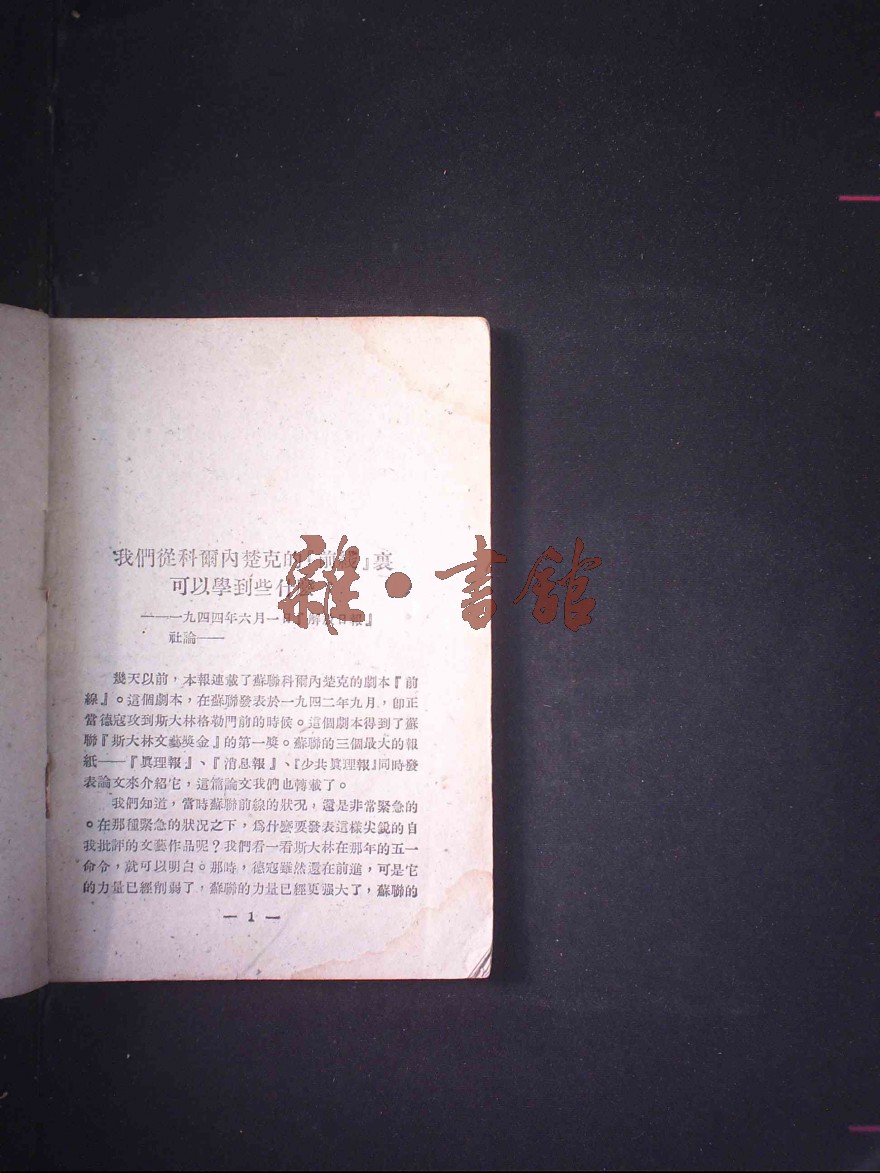 我們從科爾內楚克的『前線』裏
可以學到些什麼
———一九四四年六月一日『解放日報』
社論——
幾天以前，本報連載了蘇聯科爾內楚克的劇本『前
線』。這個劇本，在蘇聯發表於一九四二年九月，卽正
當德寇攻到斯大林格勒門前的時候。這個劇本得到了蘇
聯『斯大林文藝獎金』的第一獎。蘇聯的三個最大的報
紙——『眞理報』、『消息報』、『少共眞理報』同時發
表論文來介紹它，這篇論文我們也轉載了。
我們知道，當時蘇聯前線的狀况，還是非常緊急的
。在那種緊急的狀况之下，爲什麼要發表這樣尖銳的自
我批評的文藝作品呢？我們看一看斯大林在那年的五一
命令，就可以明白。那時，德寇雖然還在前進，可是它
的力量已經削弱了，蘇聯的力量已經更强大了，蘇聯的
— 1 —
雜·書館